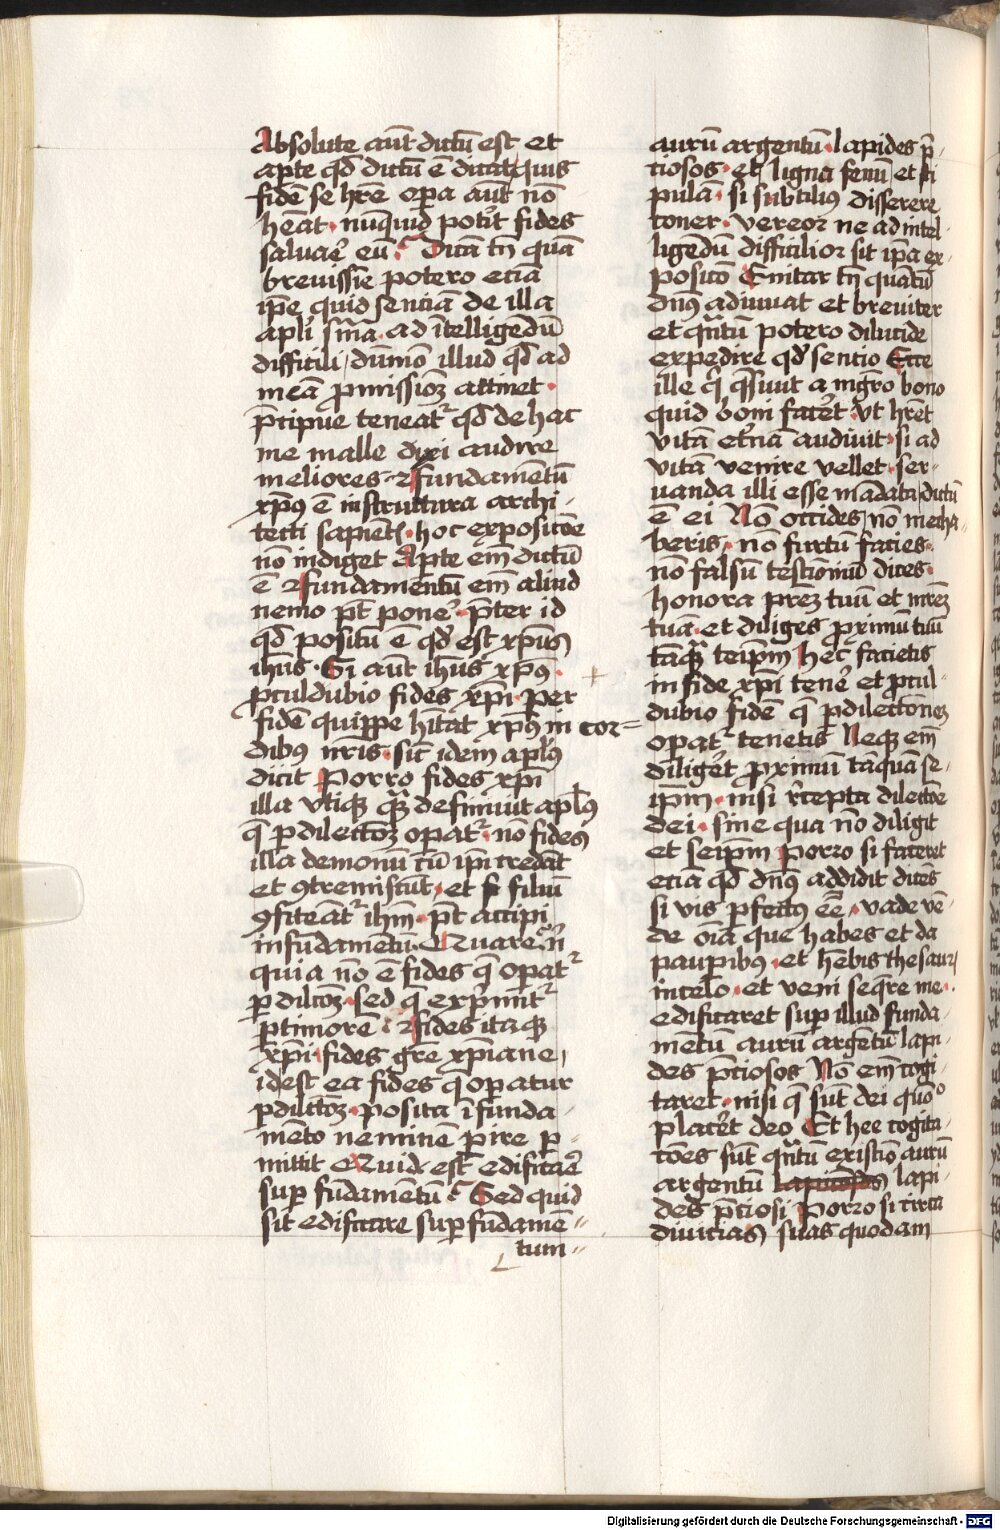 Absolute aūt dictū est et
apte qd̄ dictū ē dicat quis
fidē se hr̄e opera aut nō
heāt · nūquid potit fides
saluaɾ̉ eū · Dicā tn̄ quā
breuissīe potero etiā
ip̄e quid senciā de illa
apl̄i sn̄ia · ad ītelligēdū
difficili / dūmō illud qd̄ ad
meā ꝓmissioꝫ attinet ·
p̄cipue teneatᷣ qd̄ de hac
me malle dixi audire
meliores · ⁊ fundamētū
xp̄us ē in structura archi-
tecti sapienť · hoc expositōe
nō indiget Aꝑte em̄ dictū
ē ⁊ fundamentū em̄ aliud
nemo pt̄ ponē · p̄ter id
qd̄ positū ē qd̄ est xp̄us
ih̄us · Si aut ih̄us xp̄us ·
ꝓculdubio fides xp̄i · per
fidē quippe hītat xp̄us in cor=
dibꝰ nr̄is · sic̄ idem apl̄us
dicit Porro fides xp̄i
illa vtiqꝫ quā definiuit apl̄us
q̄ ꝑ dilectōꝫ opatᷣ · nō fides
illa demonū cū ip̄i credāt
et ꝯtremiscūt · et filiū
ꝯfiteāt᷑ ih̄m · pt̄ accipi
in fūdamētū · Quare n̄
quia nō ē fides q̄ opatᷣ
ꝑ dilc̄oꝫ · sed q̄ exp̄mitᷣ
ꝑ timorē · ⁊ fides itaqꝫ
xp̄i · fides gr̄e xp̄iane
idest ea fides q̄ operatur
ꝑ dilc̄tōꝫ · posita ī funda-
mēto neminē ꝑire ꝑ-
mittit Quid est edificaɾ̉
suꝑ fūdamētū · Sed quid
sit edificare suꝑ fūdamē=
tum=
aurū argentū · lapides p̄-
ciosos · et ligna fenū et sti
pulā · si subtiliꝰ disserere
coner · vereor ne ad intel-
ligēdū difficilior sit ip̄a ex-
positō Enitar tn̄ quātū
dn̄us adiuuat et breuiter
et qn̄tū potero dilucide
expedire qd̄ sentio Ecce
ille q̄ q̄siuit a mgr̄o bono
quid boni facēt vt hr̄et
vitā etn̄ā audiuit · si ad
vitā venire vellet · ser-
uanda illi esse mādata / dictū
ē ei Nō occides / nō mecha-
beris · nō furtū facies ·
nō falsū testīoniū dices ·
honora pr̄eꝫ tuū et mr̄eꝫ
tuā · et diliges ꝓximū tuū
tāqꝫ teip̄m hec facietis
in fide xp̄i tenē et ꝓcul-
dubio fidē q̄ ꝑ dilectōneꝫ
opatᷣ tenetis Neqꝫ em̄
diligēt ꝓximū tāquā se-
ip̄m · nisi r̄cepta dilectōe
dei · sine qua nō diligit
et seip̄m Porro si faceret
etiā qd̄ dn̄us addidit dicēs
si vis ꝑfectꝰ eē̄ · vade vē-
de oīa que habes et da
pauꝑibꝰ · et hēbis thesaurꝫ
in celo · et veni seq̄re me ·
edificaret suꝑ illud funda-
mētū aurū argētū lapi-
des p̄ciosos Nō em̄ cogi-
taret · nisi q̄ sūt dei quōo
placēt deo Et hee cogita-
tōes sūt qn̄tū existīo aurū
argentū lapi-
des p̄ciosi Porro si circa
diuicias suas quodam
Digitalisierung gefördert durch die Deutsche Forschungsgemeinschaft - DFG